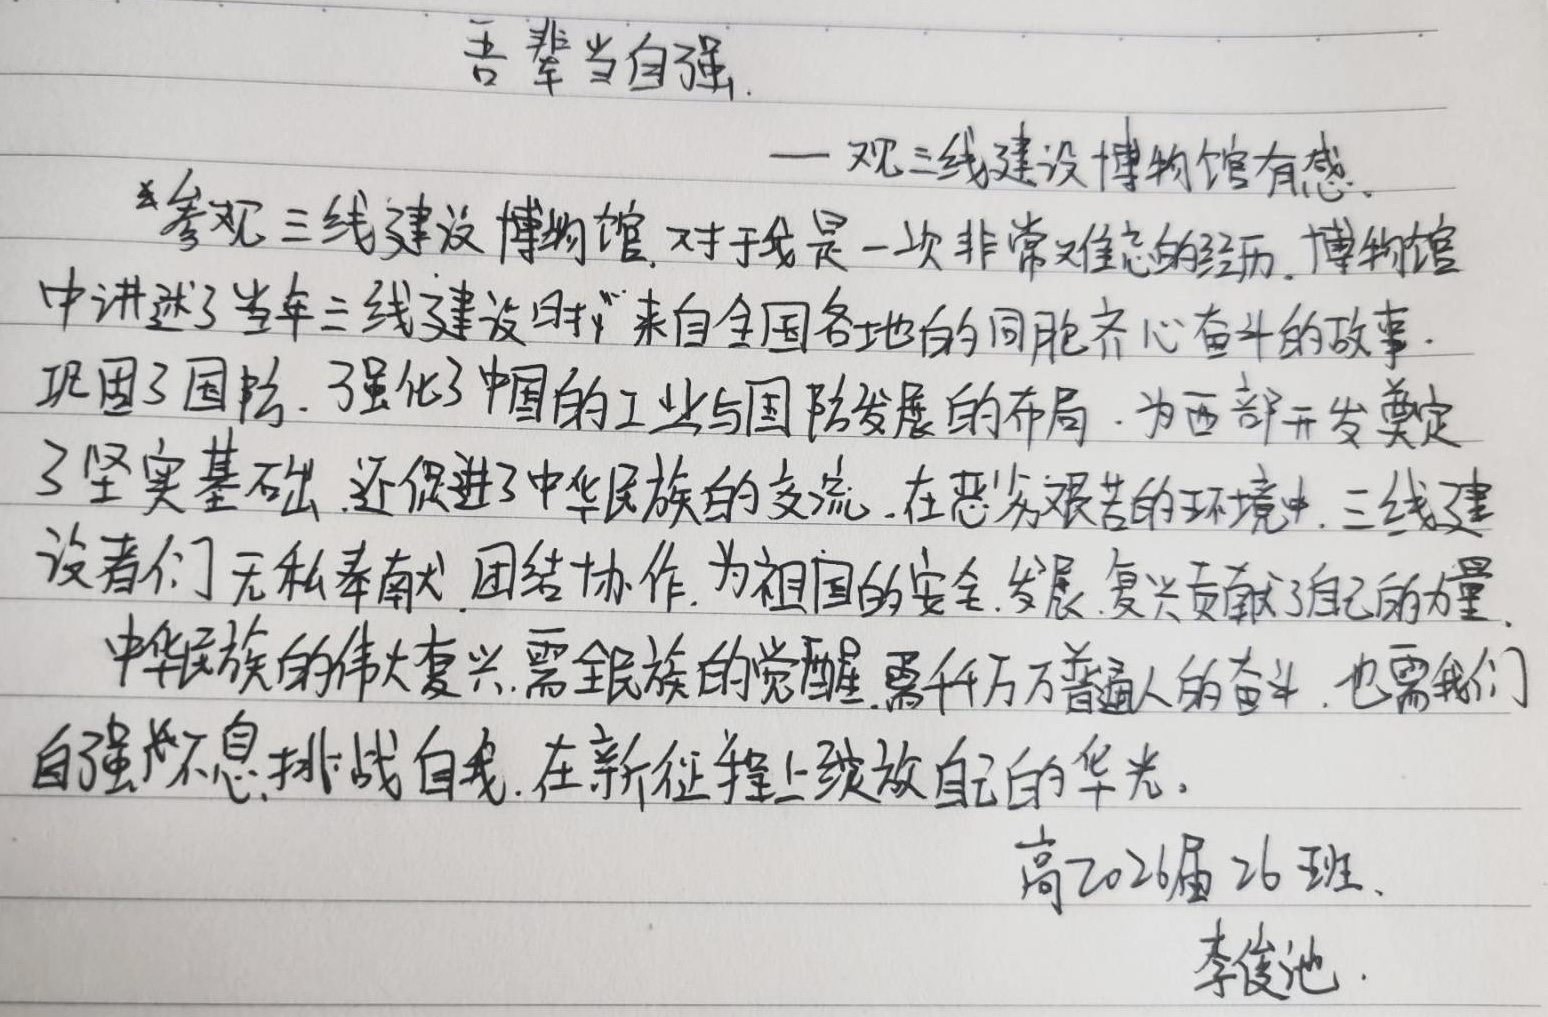 吾辈当自强.
— 观三线建设博物馆有感.
参观三线建设博物馆,对于我是一次非常难忘的经历.博物馆
中讲述了当年三线建设时,来自全国各地的同胞齐心奋斗的故事.
巩固了国防.强化了中国的工业与国防发展的布局.为西部开发奠定
了坚实基础.还促进了中华民族的交流.在恶劣艰苦的环境中.三线建
设者们无私奉献.团结协作.为祖国的安全.发展.复兴贡献了自己的力量.
中华民族的伟大复兴.需全民族的觉醒.需千千万万普通人的奋斗.也需我们
自强不息.挑战自我.在新征程上绽放自己的华光.
高2026届26班.
李俊池.